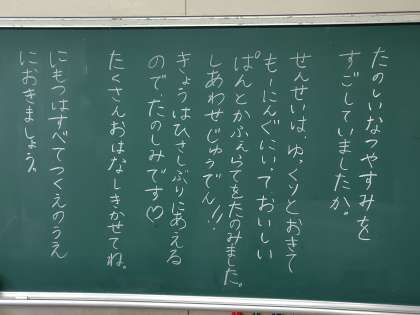 たのしいなつやすみを
すごしていましたか。
せんせいは、ゆっくりとおきて
も・にんぐにいっておいしい
ぱんとかふぇらてをたのみました。
しあわせじゅうでん!!
きょうはひさしぶりにあえる
ので、たのしみです♡
たくさんおはなしきかせてね。
にもつはすべてつくえのうえ
におきましょう。